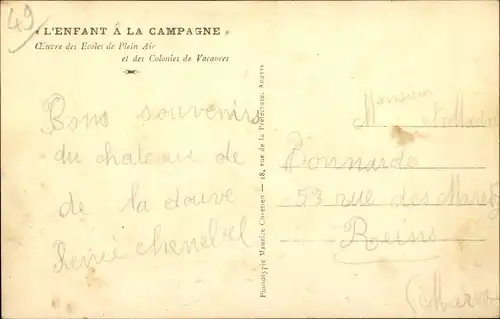 49
« L'ENFANT À LA CAMPAGNE »
Œuvre des Ecoles de Plein Air
et des Colonies de Vacances
Bons souvenirs
du chateau de
de la douve
Renée Chenebel
Phototypie Maurice Chrétien — 18, rue de la Préfecture, Angers
Monsieur
Bonnarde
53 rue des
Reims
(Marne